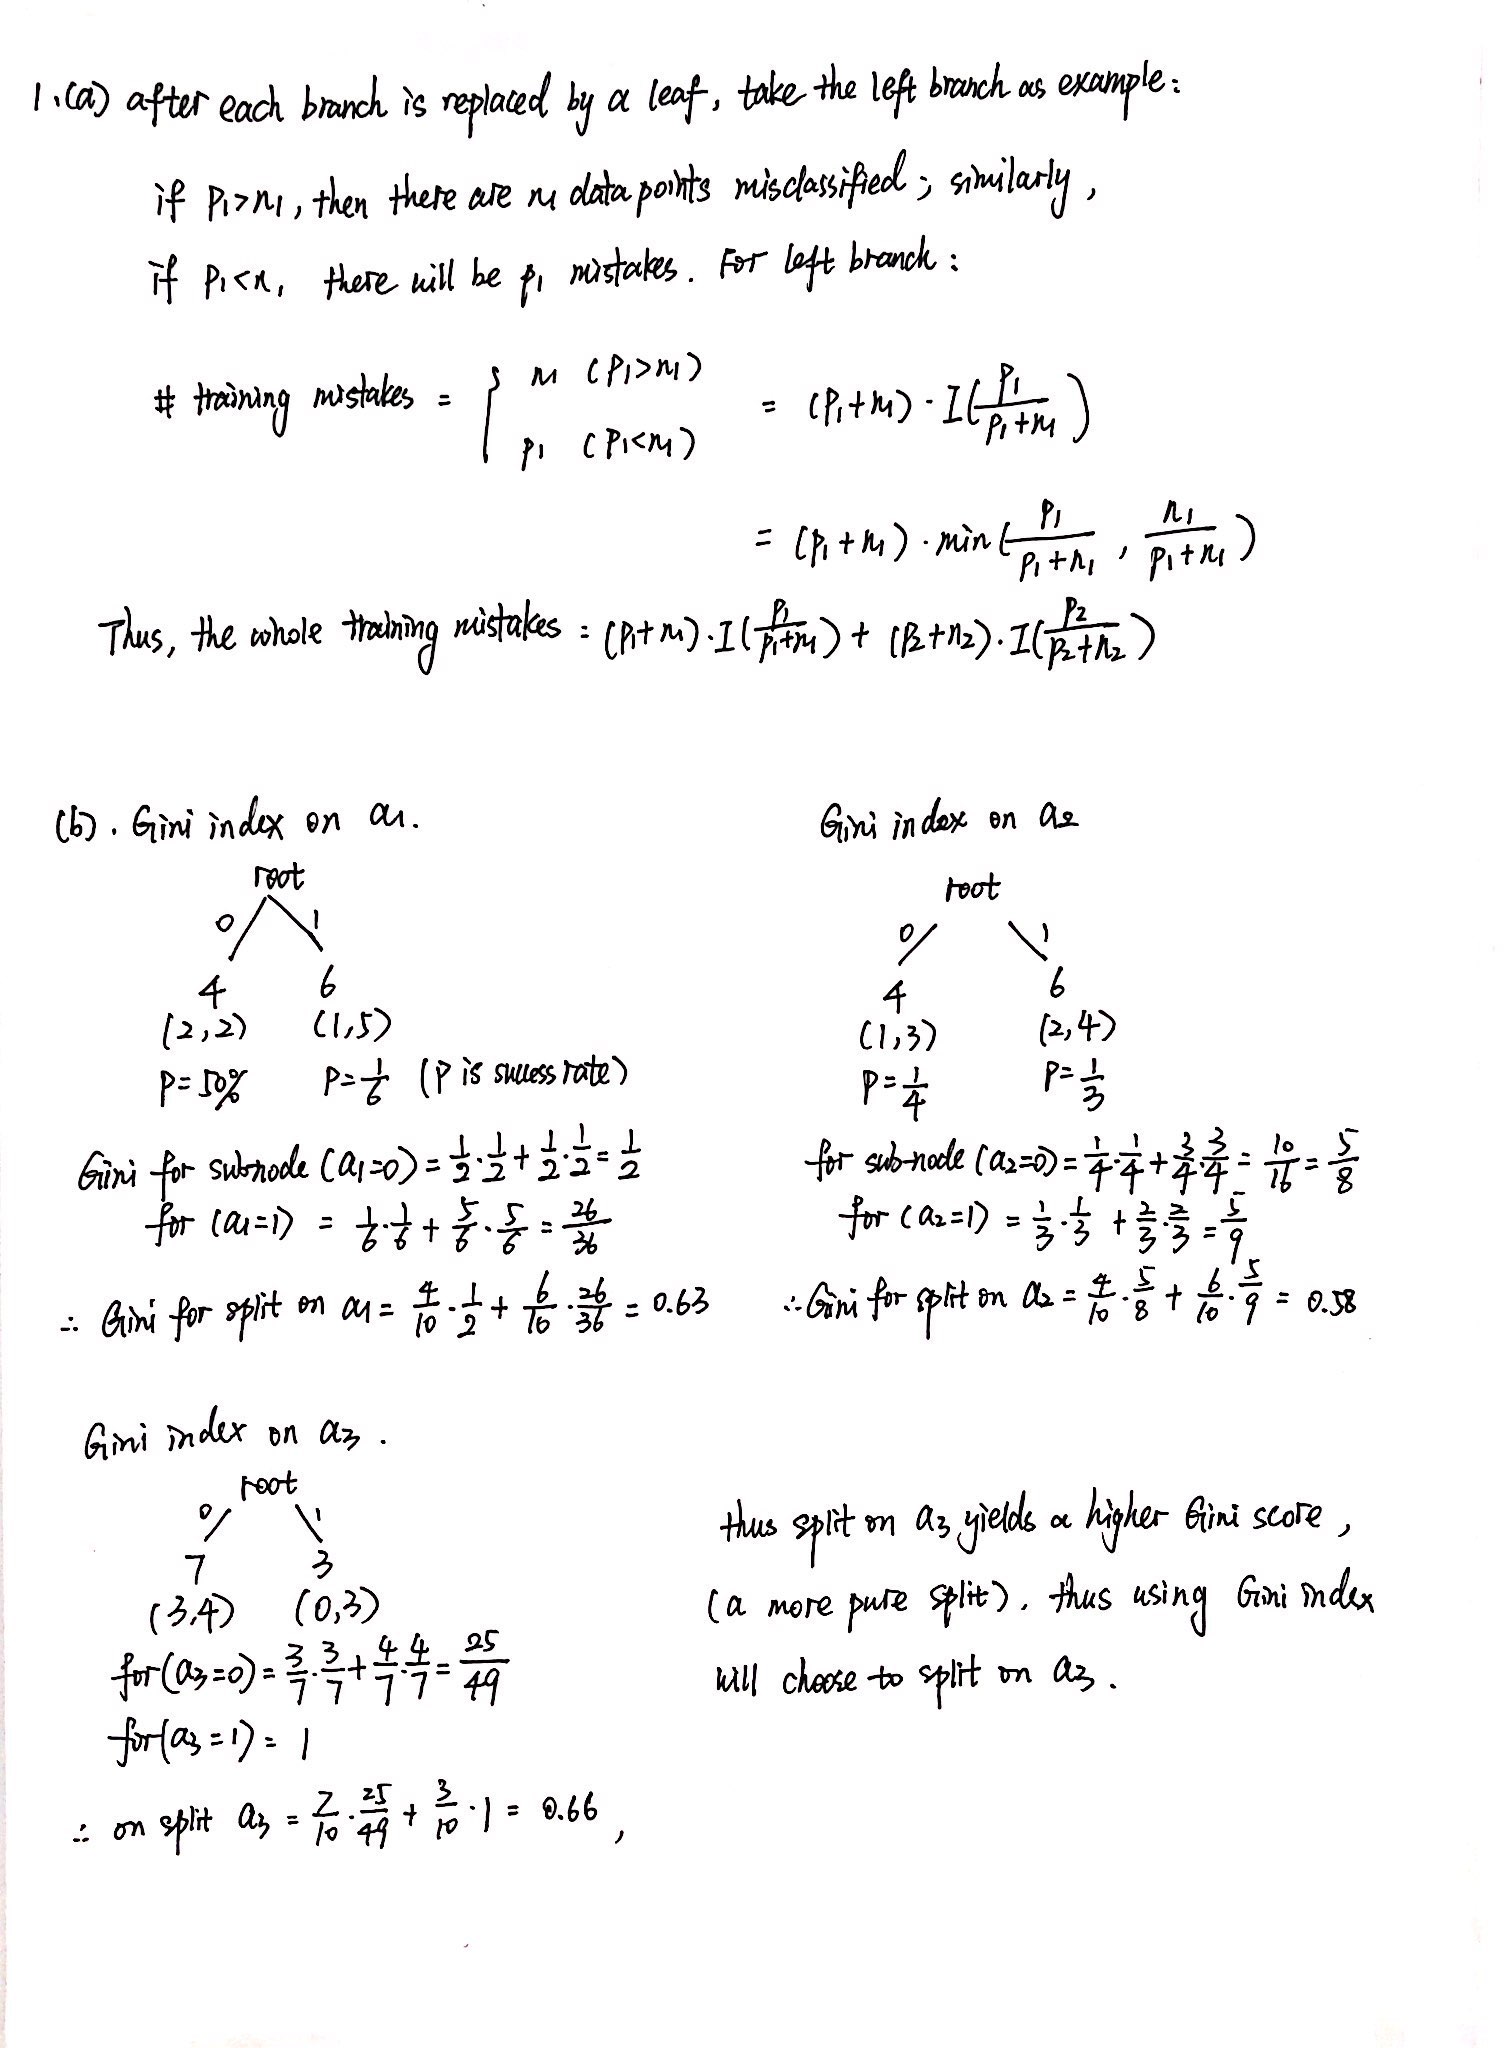 1.(a) after each branch is replaced by a leaf, take the left branch as example:
if p₁>n₁, then there are n₁ data points misclassified; similarly,
if p₁<n₁ there will be p₁ mistakes. For left branch:
# training mistakes = { n₁ (p₁>n₁) = (p₁+n₁)·I(p₁/(p₁+n₁))
p₁ (p₁<n₁)
= (p₁+n₁)·min(p₁/(p₁+n₁), n₁/(p₁+n₁))
Thus, the whole training mistakes = (p₁+n₁)·I(p₁/(p₁+n₁)) + (p₂+n₂)·I(p₂/(p₂+n₂))
(b). Gini index on a₁.
root
0 1
4 6
(2,2) (1,5)
P=50% P=1/6 (P is success rate)
Gini for subnode (a₁=0) = 1/2·1/2+1/2·1/2=1/2
for (a₁=1) = 1/6·1/6+5/6·5/6=26/36
∴ Gini for split on a₁ = 4/10·1/2+6/10·26/36=0.63
Gini index on a₂
root
0 1
4 6
(1,3) (2,4)
P=1/4 P=1/3
for sub-node (a₂=0) = 1/4·1/4+3/4·3/4=10/16=5/8
for (a₂=1) = 1/3·1/3+2/3·2/3=5/9
∴ Gini for split on a₂ = 4/10·5/8+6/10·5/9=0.58
Gini index on a₃.
root
0 1
7 3
(3,4) (0,3)
for(a₃=0)=3/7·3/7+4/7·4/7=25/49
for(a₃=1)=1
∴ on split a₃ = 7/10·25/49+3/10·1=0.66,
thus split on a₃ yields a higher Gini score,
(a more pure split). thus using Gini index
will choose to split on a₃.